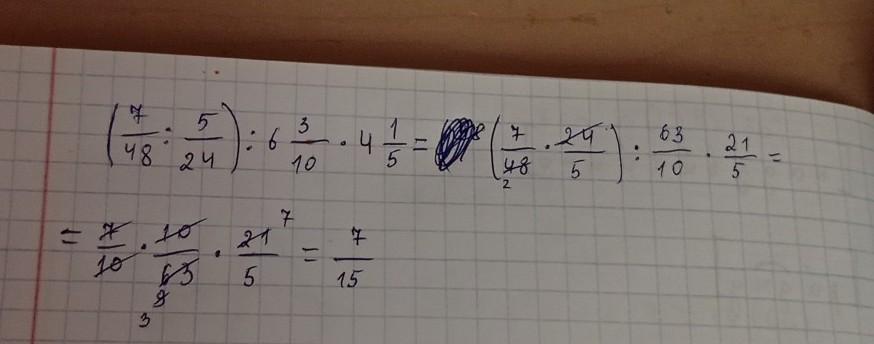 (7/48 : 5/24) : 6 3/10 · 4 1/5 = (7/48 2 · 24/5) : 63/10 · 21/5 =
= 7/10 · 10/63 9 3 · 21 7/5 = 7/15